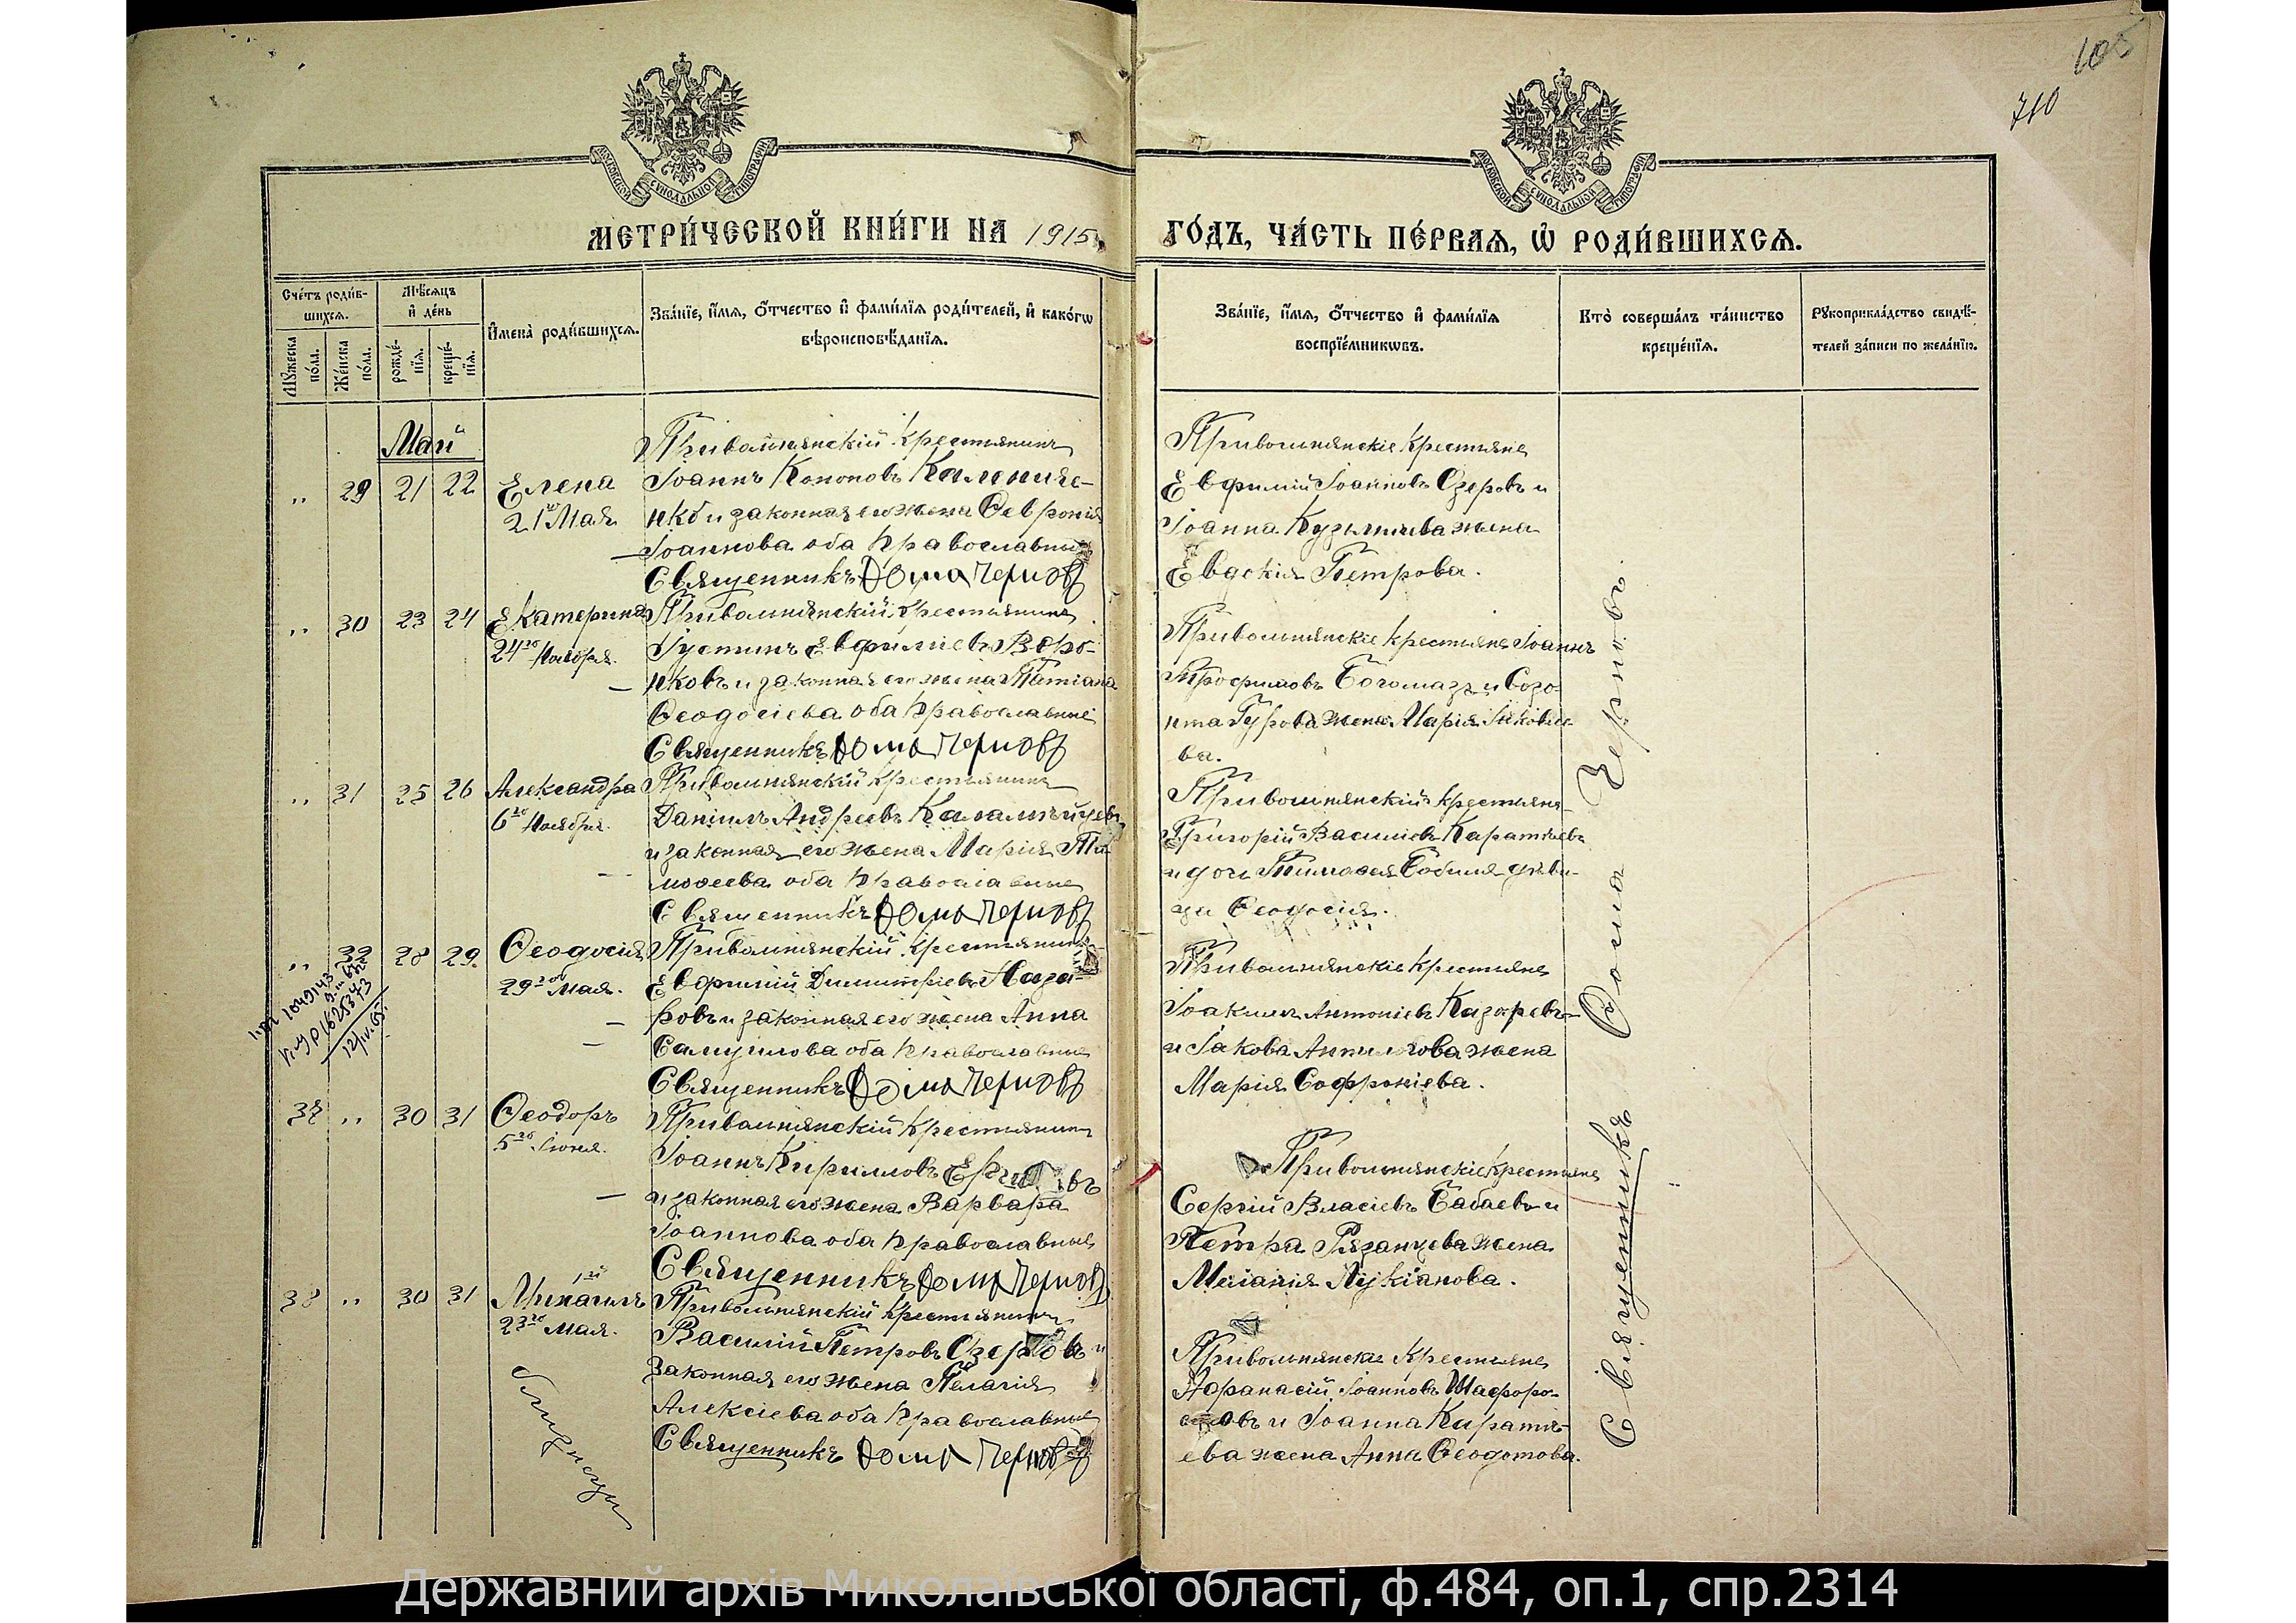 105
710
МОСКОВСКОЙ СѴНОДАЛЬНОЙ ТИПОГРАФІИ
МОСКОВСКОЙ СѴНОДАЛЬНОЙ ТИПОГРАФІИ
МЕТРИ́ЧЕСКОЙ КНИ́ГИ НА 1915
ГО́ДЪ, ЧА́СТЬ ПЕ́РВАѦ, Ѽ РОДИ́ВШИХСѦ.
Сче́тъ роди́в-
шихсѧ.
Мꙋ́жеска по́ла.
Же́нска по́ла.
Мѣ́сяцъ
и҆ де́нь
рожде́-
нїѧ.
креще́-
нїѧ.
И҆мена̀ роди́вшихсѧ.
Зва́нїе, и҆́мѧ, ѻ҆́тчество и҆ фами́лїѧ роди́телей, и҆ како́гѡ
вѣроисповѣ́данїѧ.
Зва́нїе, и҆́мѧ, ѻ҆́тчество и҆ фами́лїѧ
воспрїе́мникѡвъ.
Кто̀ соверша́лъ та́инство
креще́нїѧ.
Рꙋкоприкла́дство свидѣ́-
телей за́писи по жела́нїю.
Май
Привольнянскій крестьянинъ
„ 29 21 22 Елена Іоаннъ Кононовъ Калениче-
21го Мая нко и законная его жена Февронія
Іоаннова оба православные
Священникъ Ѳома Черновъ
Привольнянскіе крестьяне
Евфимій Іоанновъ Озеровъ и
Іоанна Кузьмичева жена
Евдокія Петрова.
„ 30 23 24 Екатерина Привольнянскій крестьянинъ
24го Ноября. Іустинъ Евфиміевъ Воро-
нковъ и законная его жена Татіана
Ѳеодосіева оба православные
Священникъ Ѳома Черновъ
Привольнянскіе крестьяне Іоаннъ
Трофимовъ Богомазъ и Созо-
нта Гурова жена Марія Іаковле-
ва.
„ 31 25 26 Александра Привольнянскій крестьянинъ
6го Ноября. Даніилъ Андреевъ
и законная его жена Марія Ти-
моѳеева оба православные
Священникъ Ѳома Черновъ
Привольнянскій крестьяне
Григорій Василіевъ Каратѣевъ
и дочь Тимоѳея Бобыля дѣви-
ца Ѳеодосія.
„ 32 28 29 Ѳеодосія Привольнянскій крестьянинъ
29го Мая. Евфимій Димитріевъ Наза-
ровъ и законная его жена Анна
Самуилова оба православные
Священникъ Ѳома Черновъ
12/IV.65.
Привольнянскіе крестьяне
Іоакимъ Антоніевъ Назаревъ
и Іакова жена
Марія Софроніева.
37 „ 30 31 Ѳеодоръ Привольнянскій крестьянинъ
5го Іюня. Іоаннъ Кирилловъ
и законная его жена Варвара
Іоаннова оба православные
Священникъ Ѳома Черновъ
Привольнянскіе крестьяне
Сергій Власіевъ Бабаевъ и
Петра Рязанцева жена
Меланія Лукіанова.
38 „ 30 31 Михаилъ Привольнянскій крестьянинъ
23го Мая. Василій Петровъ Озеровъ и
законная его жена Пелагія
Алексіева оба православные
Священникъ Ѳома Черновъ
близнецы
Привольнянскіе крестьяне
Афанасій Іоанновъ Шафоро-
стовъ и Іоанна Каратѣ-
ева жена Анна Ѳеодотова.
Священникъ Ѳома Черновъ.
Державний архів Миколаївської області, ф.484, оп.1, спр.2314